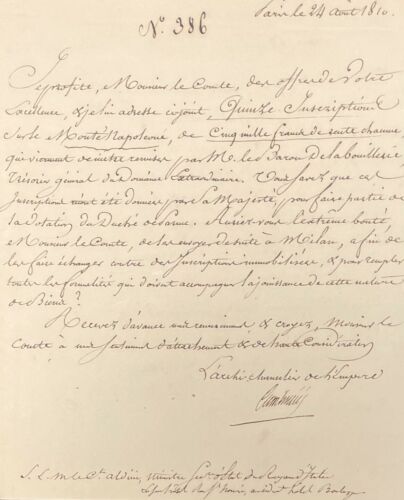 N.º 386
Paris le 24 Août 1810.
Je profite, Monsieur le Comte, des offres de Votre
Excellence, & je lui adresse cijoint, Quinze Inscriptions
sur le Monte Napoleone, de Cinq mille francs de rente chacune
qui viennent de m'être remises par M. le Baron De la bouillerie
Trésorier général du Domaine Extraordinaire. Vous savez que ces
Inscriptions m'ont été données par Sa Majesté, pour faire partie de
la dotation du Duché de Parme. Auriez-vous l'extrême bonté,
Monsieur le Comte, de les envoyer de suite à Milan, afin de
les faire échanger contre des Inscriptions immobilisées, & pour remplir
toutes les formalités qui doivent accompagner la jouissance de cette nature
de Biens ?
Recevez d'avance mes remercimens & croyez, Monsieur le
Comte à mes sentimens d'attachement & de haute Considération
L'archi-chancelier de l'Empire
Cambacérès
S. E. M. le Cte. aldini, Ministre Secre. d'Etat du Royaume d'Italie